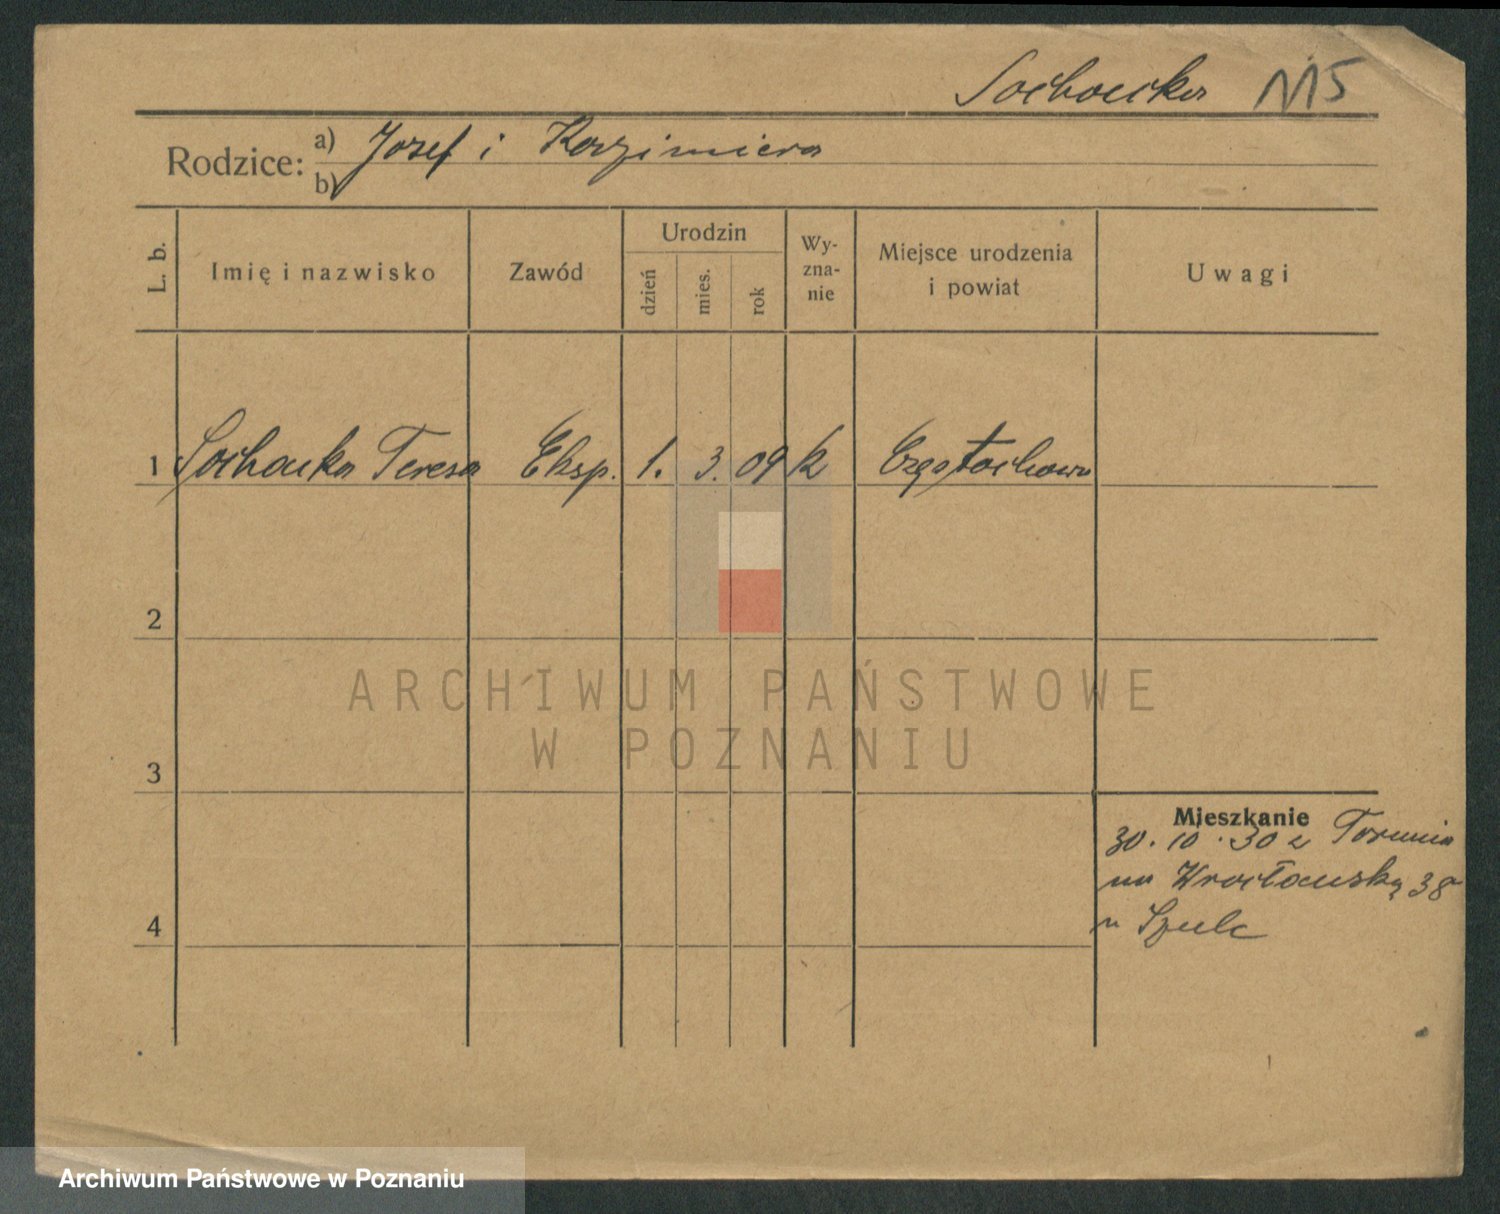 Sochacka 115
Rodzice:
a) Jozef i Kazimiera
b)
L. b.
Imię i nazwisko
Zawód
Urodzin
dzień
mies.
rok
Wy-
zna-
nie
Miejsce urodzenia
i powiat
Uwagi
1 Sochacka Teresa Eksp. 1. 3. 09 k Częstochowa
2
3
4
Mieszkanie
30.10.30 z Torunia
na Wrocławską 38
u Szulc
ARCHIWUM PAŃSTWOWE
W POZNANIU
Archiwum Państwowe w Poznaniu